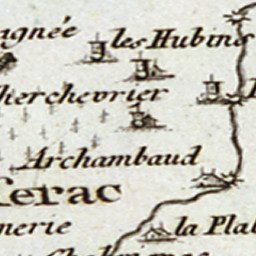 agnée les Hubins
Cherchevrier
Archambaud
erac
nerie la Pla